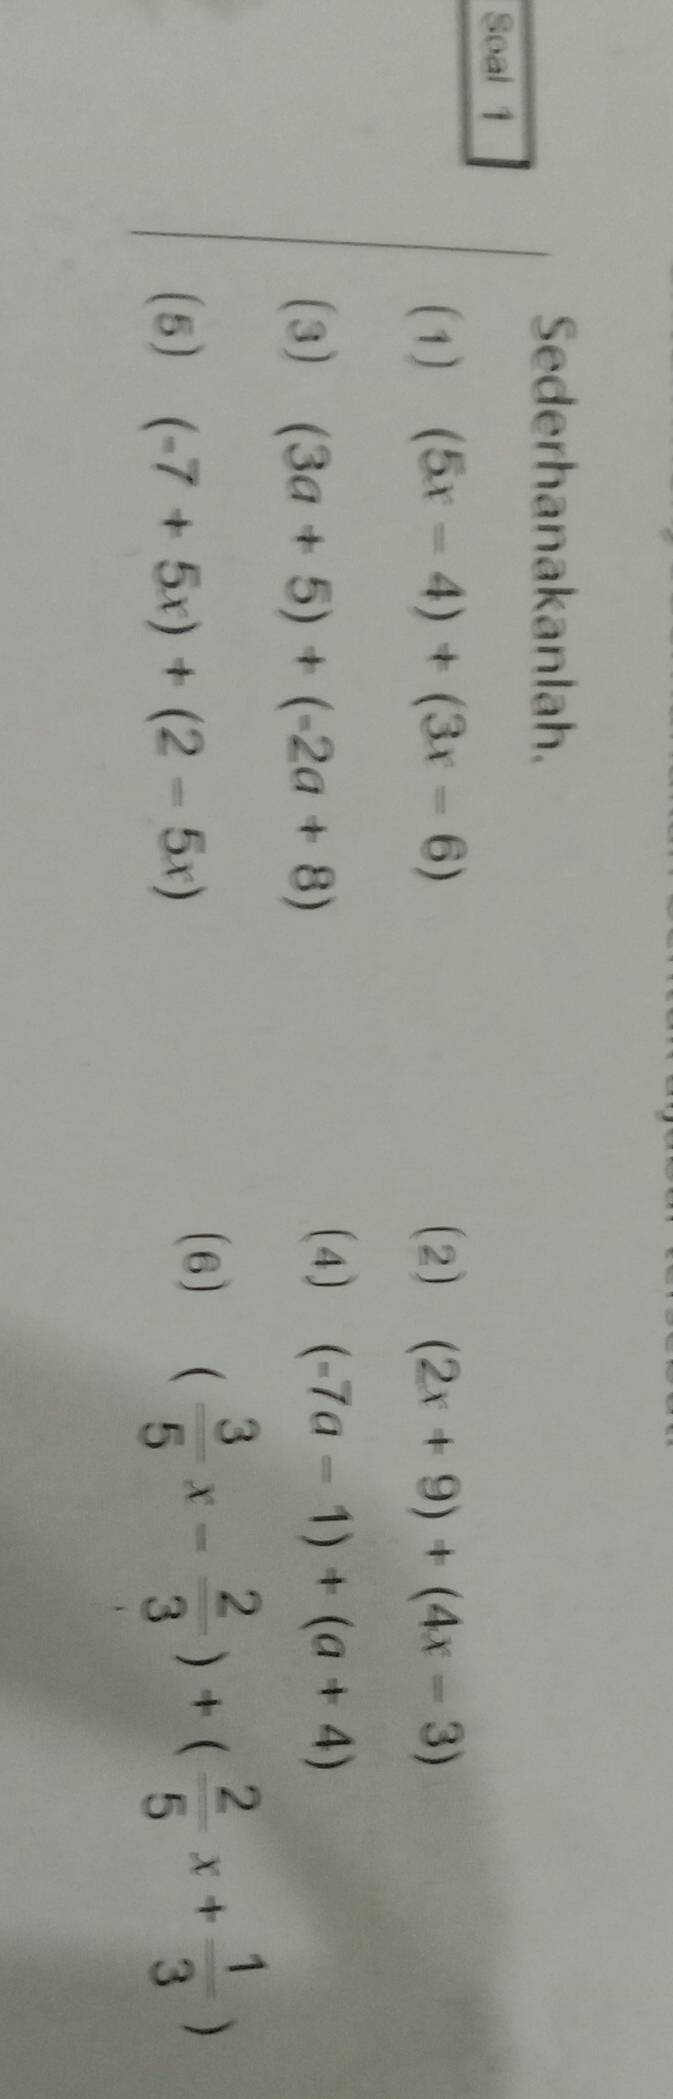 Soal 1
Sederhanakanlah.
(1) (5x – 4) + (3x – 6) (2) (2x + 9) + (4x – 3)
(3) (3a + 5) + (-2a + 8) (4) (-7a – 1) + (a + 4)
(5) (-7 + 5x) + (2 – 5x) (6) (3/5 x – 2/3) + (2/5 x + 1/3)